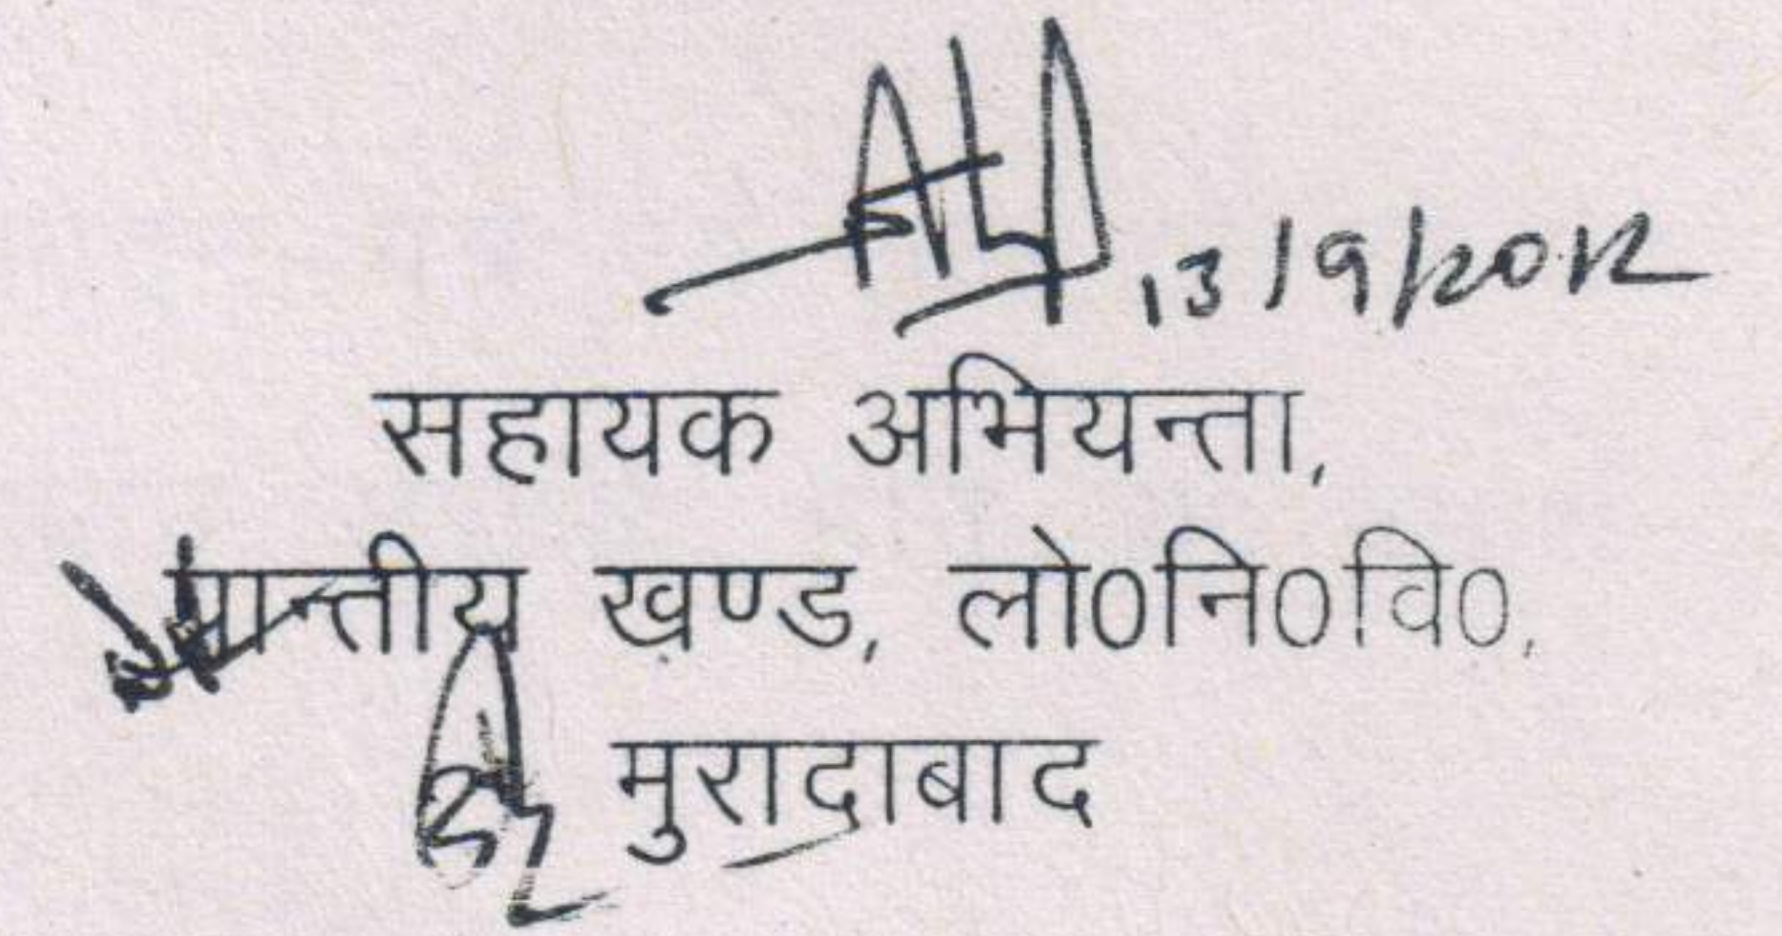 13/9/2012
सहायक अभियन्ता,
प्रान्तीय खण्ड, लो0नि0वि0,
मुरादाबाद